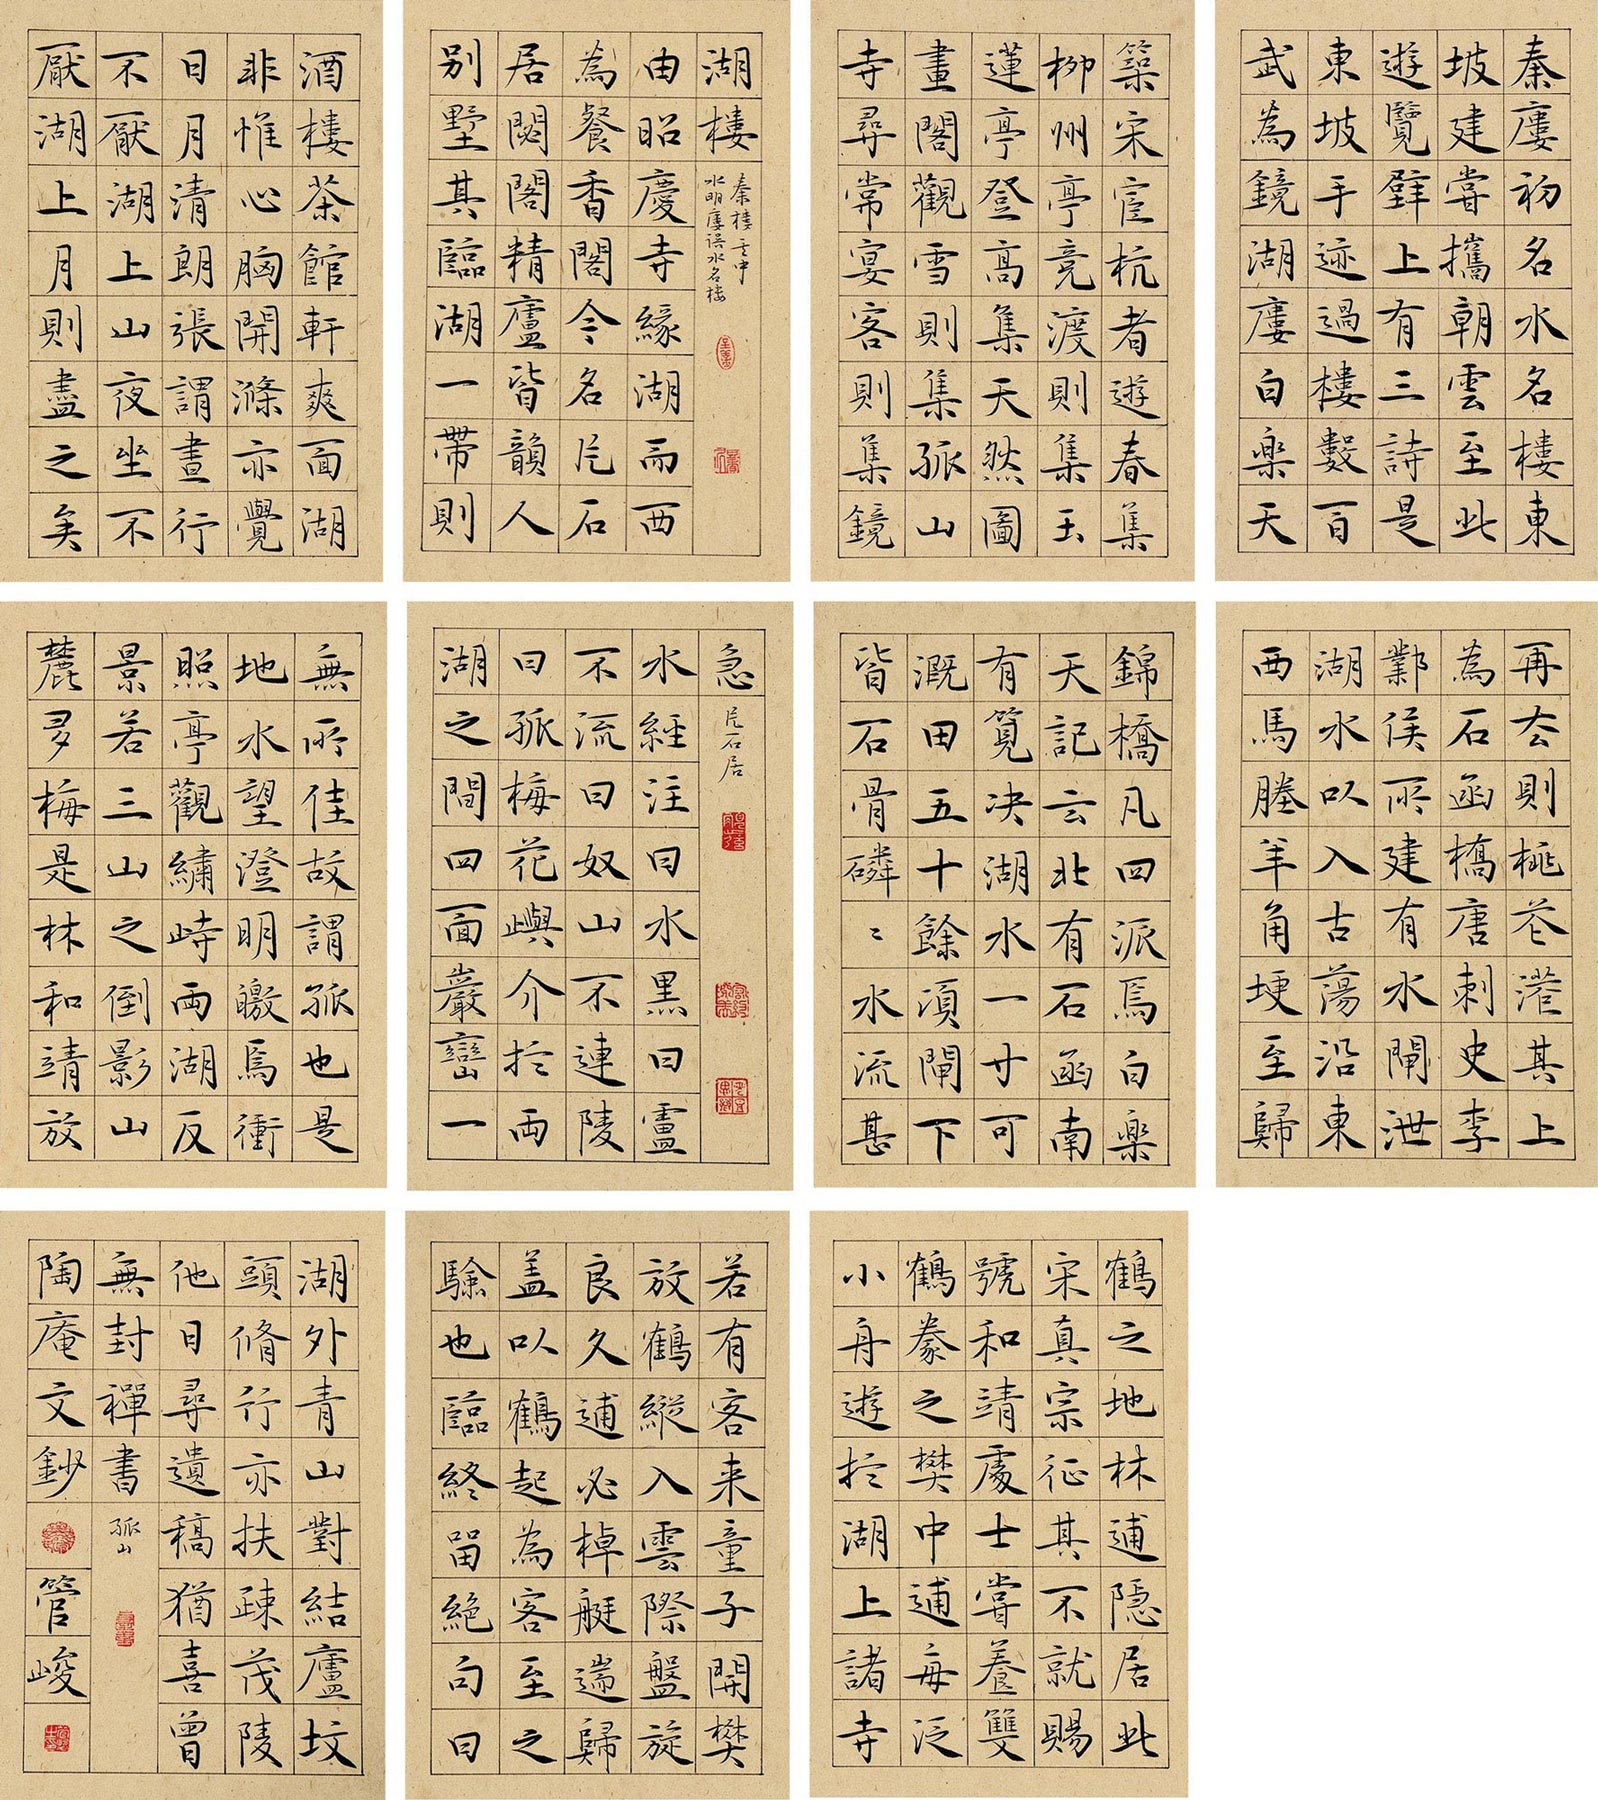 秦廔初名水名樓東
坡建嘗攜朝雲至此
遊覽壁上有三詩是
東坡手迹過樓數百
武為鏡湖廔白樂天
築宋宦杭者遊春集
柳州亭競渡則集玉
蓮亭登高集天然圖
畫閣觀雪則集孤山
寺尋常宴客則集鏡
湖樓
秦樓 文中
水明廔誤水名樓
由昭慶寺緣湖而西
為餐香閣今名片石
居閟閣精廬皆韻人
別墅其臨湖一帶則
酒樓茶館軒爽面湖
非惟心胸開滌亦覺
日月清朗張謂晝行
不厭湖上山夜坐不
厭湖上月則盡之矣
再去則桃花港其上
為石函橋唐刺史李
鄴侯所建有水閘泄
湖水以入古蕩沿東
西馬塍羊角埂至歸
錦橋凡四派焉白樂
天記云北有石函南
有筧决湖水一寸可
溉田五十餘頃閘下
皆石骨磷〻水流甚
急
片石居
水經注曰水黑曰盧
不流曰奴山不連陵
曰孤梅花嶼介於兩
湖之間四面巖巒一
無所佳故謂孤也是
地水望澄明皦焉衝
照亭觀繡峙兩湖反
景若三山之倒影山
麓多梅是林和靖放
鶴之地林逋隱居此
宋真宗征其不就賜
號和靖處士嘗養雙
鶴豢之樊中逋每泛
小舟遊於湖上諸寺
若有客来童子開樊
放鶴縱入雲際盤旋
良久逋必棹艇遄歸
盖以鶴起為客至之
驗也臨終留絕句曰
湖外青山對結廬墳
頭脩竹亦扶疎茂陵
他日尋遺稿猶喜曾
無封禪書
孤山
陶庵文鈔
管峻